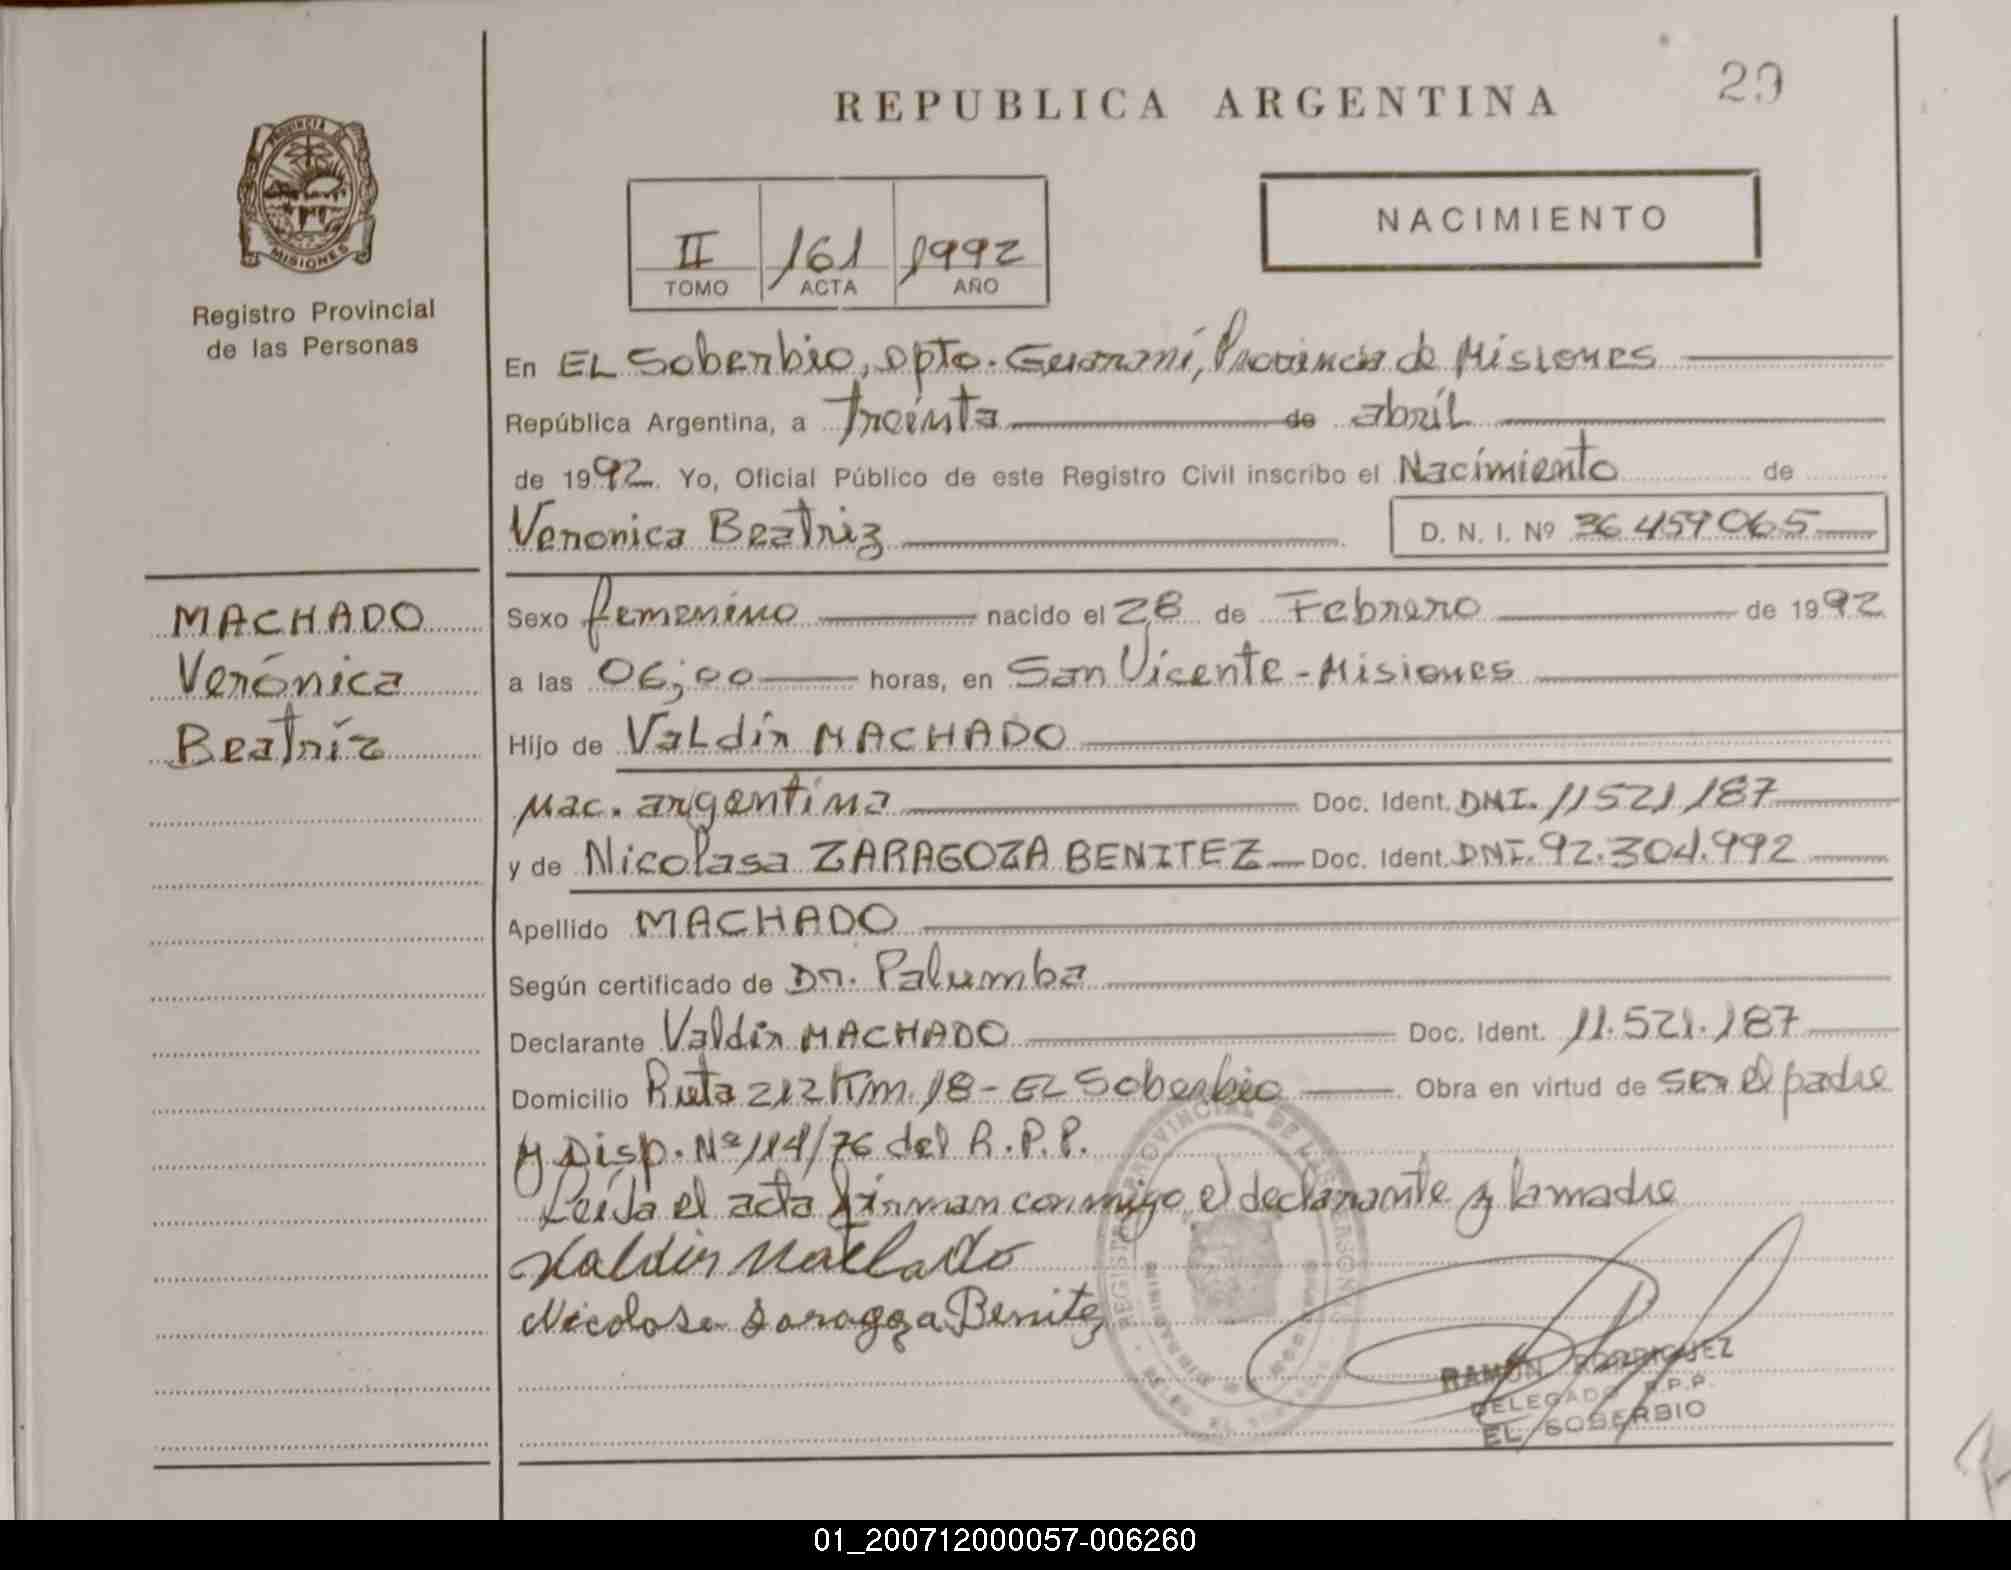 REPUBLICA ARGENTINA
29
PROVINCIA DE MISIONES
Registro Provincial
de las Personas
II 161 1992
TOMO ACTA AÑO
NACIMIENTO
En EL Soberbio, Dpto. Guaraní, Provincia de Misiones
República Argentina, a Treinta de abril
de 1992. Yo, Oficial Público de este Registro Civil inscribo el Nacimiento de
Veronica Beatriz D. N. I. Nº 36.459.065
MACHADO
Verónica
Beatríz
Sexo femenino nacido el 28 de Febrero de 1992
a las 06;00 horas, en San Vicente - Misiones
Hijo de Valdir MACHADO
Nac. argentina Doc. Ident. DNI. 11521187
y de Nicolasa ZARAGOZA BENITEZ Doc. Ident. DNI. 92.304.992
Apellido MACHADO
Según certificado de Dr. Palumba
Declarante Valdir MACHADO Doc. Ident. 11.521.187
Domicilio Ruta 212 Km. 18 - EL Soberbio Obra en virtud de ser el padre
y Disp. Nº 114/76 del R.P.P.
Leída el acta firman conmigo el declarante y la madre
Valdir Machado
Nicolosa Saragoza Benitez
RAMON RODRIGUEZ
DELEGADO R.P.P.
EL SOBERBIO
01_200712000057-006260